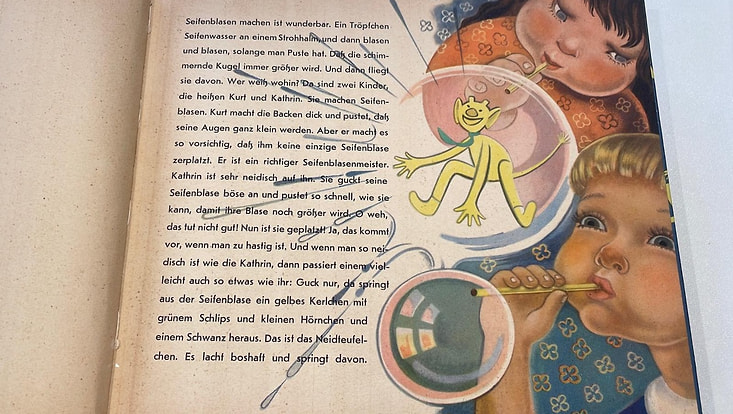 Seifenblasen machen ist wunderbar. Ein Tröpfchen
Seifenwasser an einem Strohhalm, und dann blasen
und blasen, solange man Puste hat. Daß die schim-
mernde Kugel immer größer wird. Und dann fliegt
sie davon. Wer weiß wohin? Da sind zwei Kinder,
die heißen Kurt und Kathrin. Sie machen Seifen-
blasen. Kurt macht die Backen dick und pustet, daß
seine Augen ganz klein werden. Aber er macht es
so vorsichtig, daß ihm keine einzige Seifenblase
zerplatzt. Er ist ein richtiger Seifenblasenmeister.
Kathrin ist sehr neidisch auf ihn. Sie guckt seine
Seifenblase böse an und pustet so schnell, wie sie
kann, damit ihre Blase noch größer wird. O weh,
das tut nicht gut! Nun ist sie geplatzt! Ja, das kommt
vor, wenn man zu hastig ist. Und wenn man so nei-
disch ist wie die Kathrin, dann passiert einem viel-
leicht auch so etwas wie ihr: Guck nur, da springt
aus der Seifenblase ein gelbes Kerlchen mit
grünem Schlips und kleinen Hörnchen und
einem Schwanz heraus. Das ist das Neidteufel-
chen. Es lacht boshaft und springt davon.